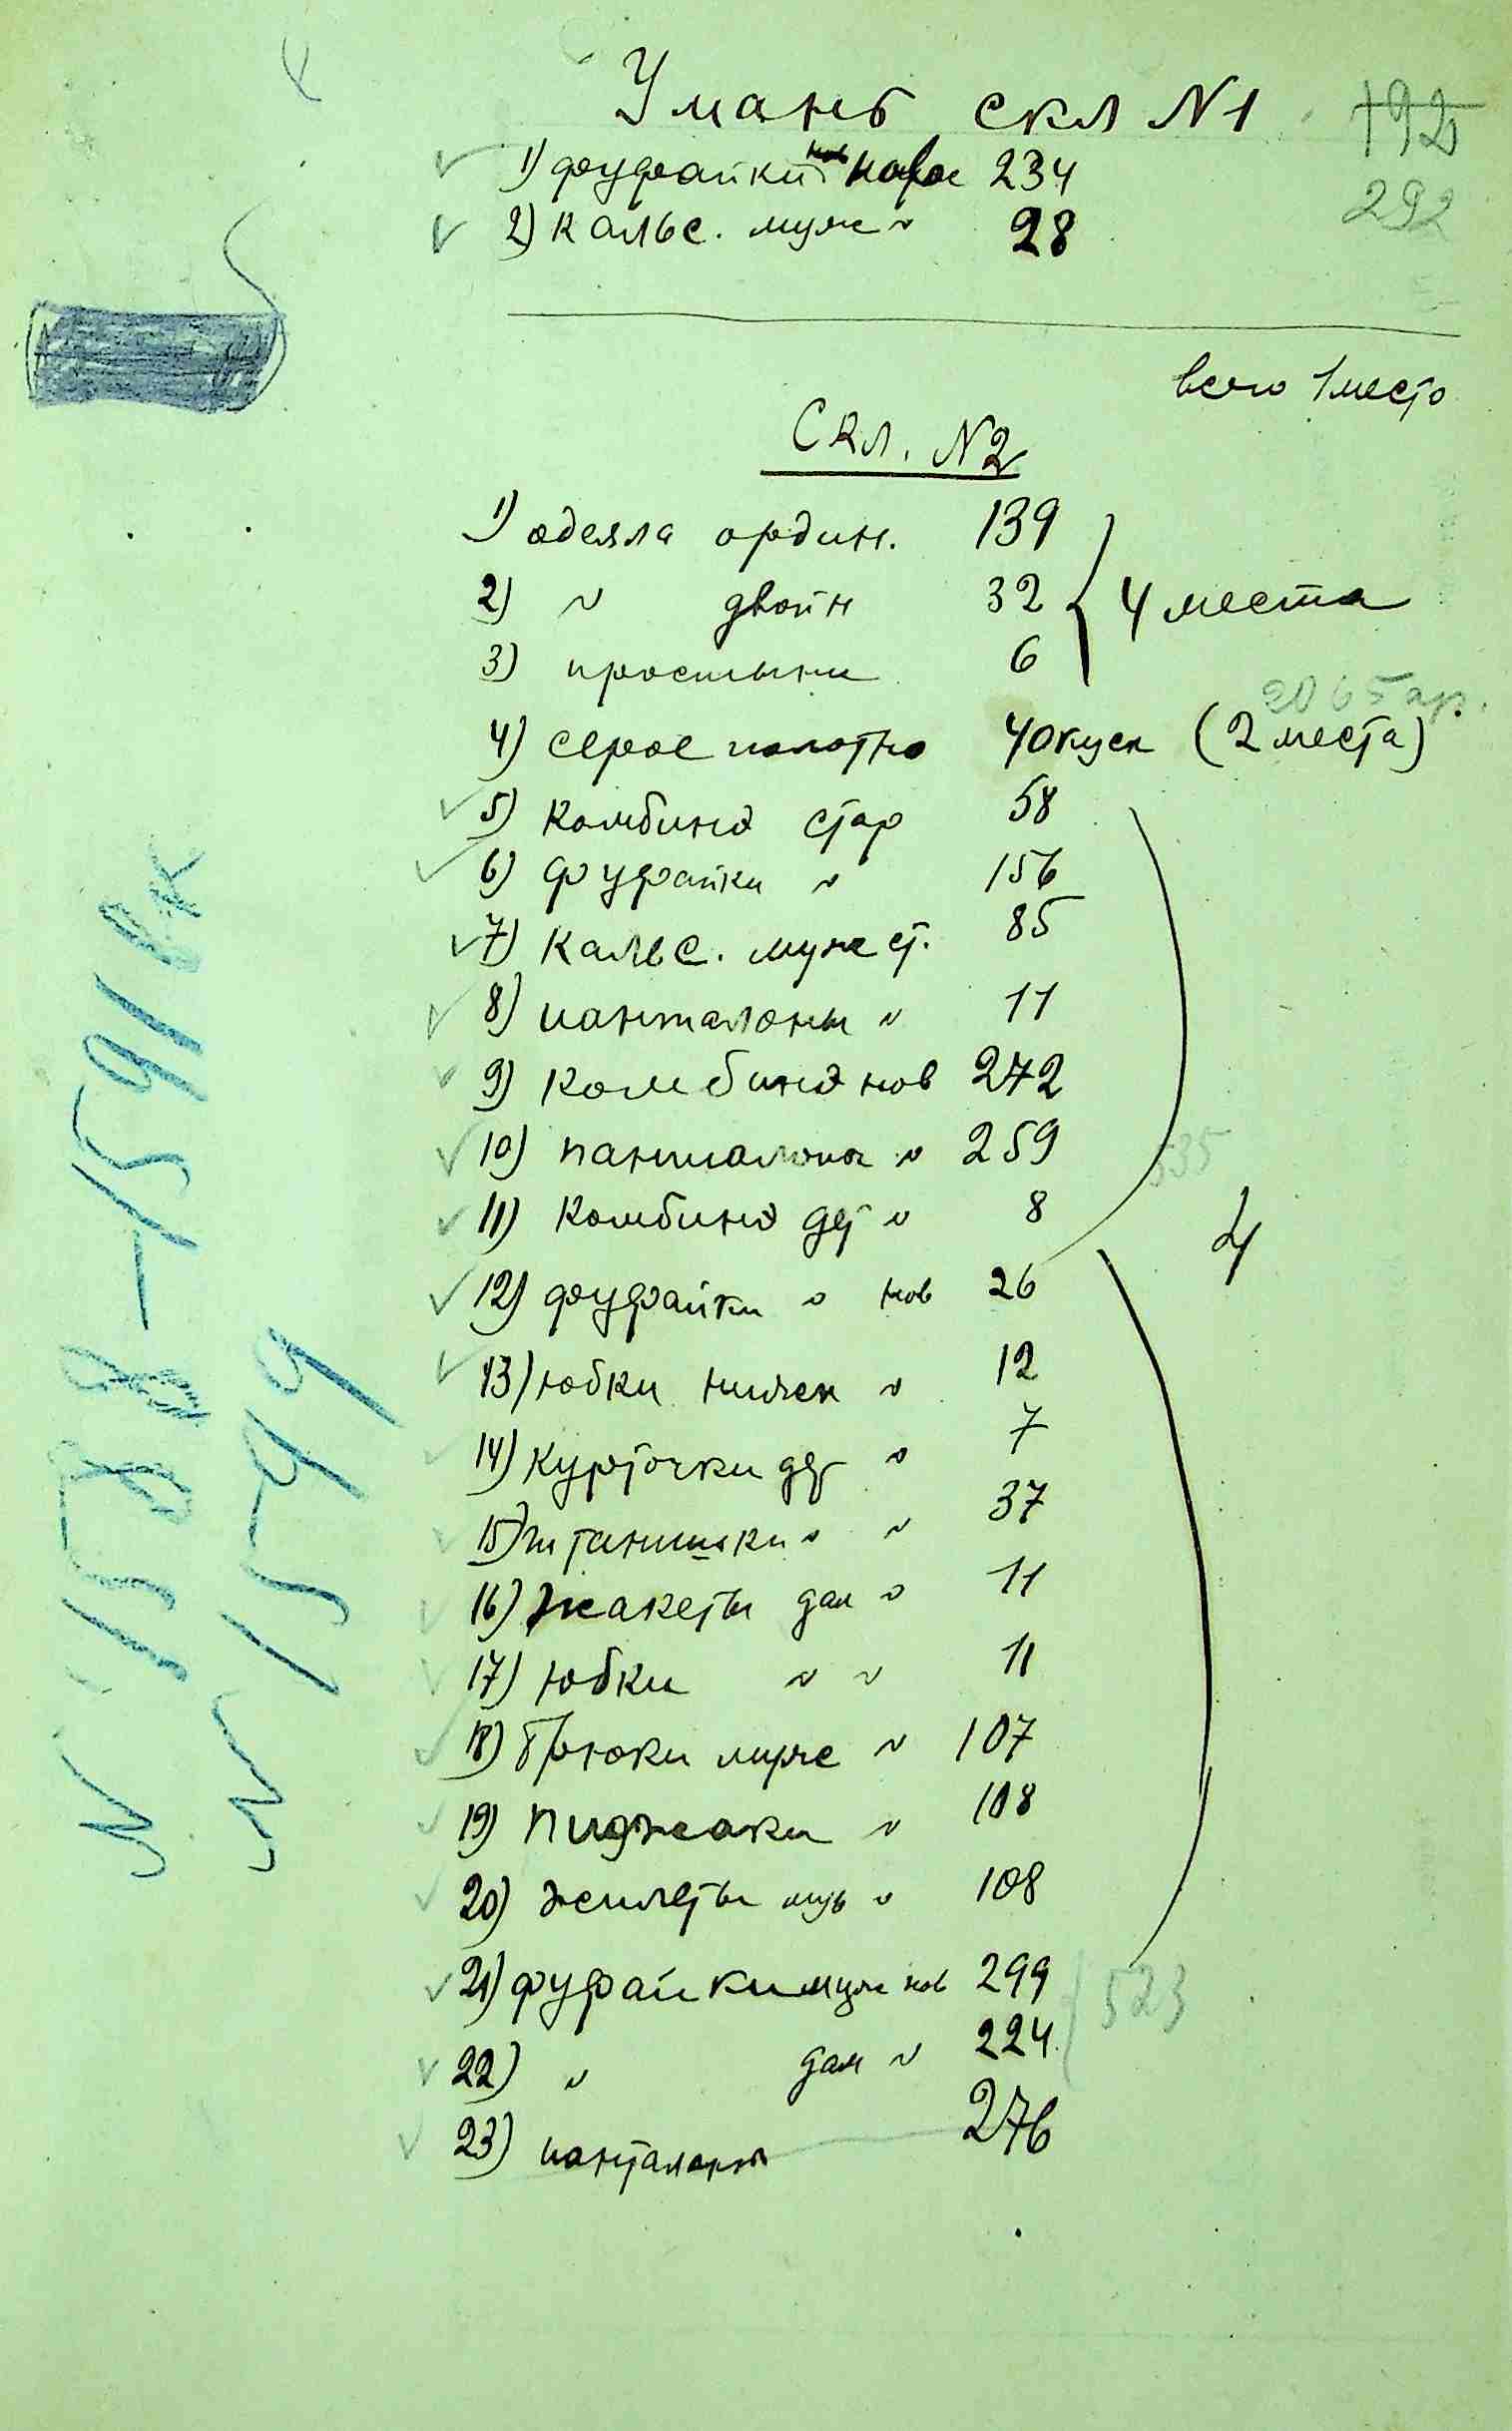 Умань скл N1
192
1) фуфайки новые 234
292
2) кальс. муж " 28
всего 1 место
Скл. N2
1) одеяла ордин. 139
2) " двойн 32
4 места
3) простыни 6
2065 ар.
4) серое полотно 40 куск (2 места)
5) комбинэ стар 58
6) фуфайки " 156
7) кальс. муж ст. 85
8) панталоны " 11
9) комбинэ нов 272
10) панталоны " 259
535
11) комбинэ дет " 8
4
12) фуфайки " нов 26
13) юбки нижн " 12
14) курточки дет " 7
15) штанишки " " 37
16) жакеты дам " 11
17) юбки " " 11
18) брюки мужс " 107
19) пиджаки " 108
20) жилеты муж " 108
21) фуфайки муж нов 299
523
22) " дам " 224
23) панталоны 276
N 1588-1591 вк
N 15-49